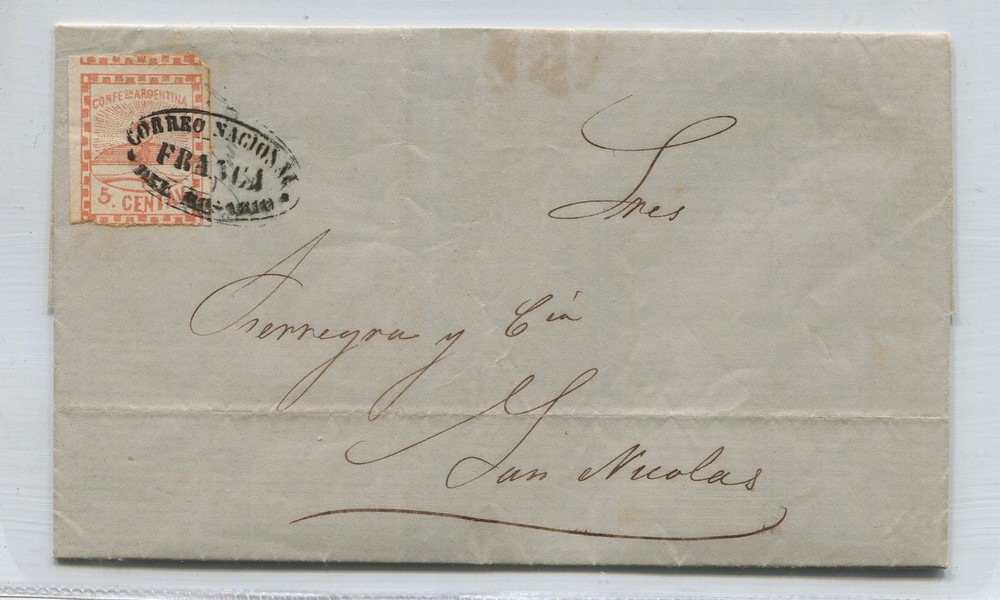 CONFEON ARGENTINA
5. CENT
CORREO NACIONAL
FRANCA
DEL ROSARIO
Sres
y Cía
San Nicolas